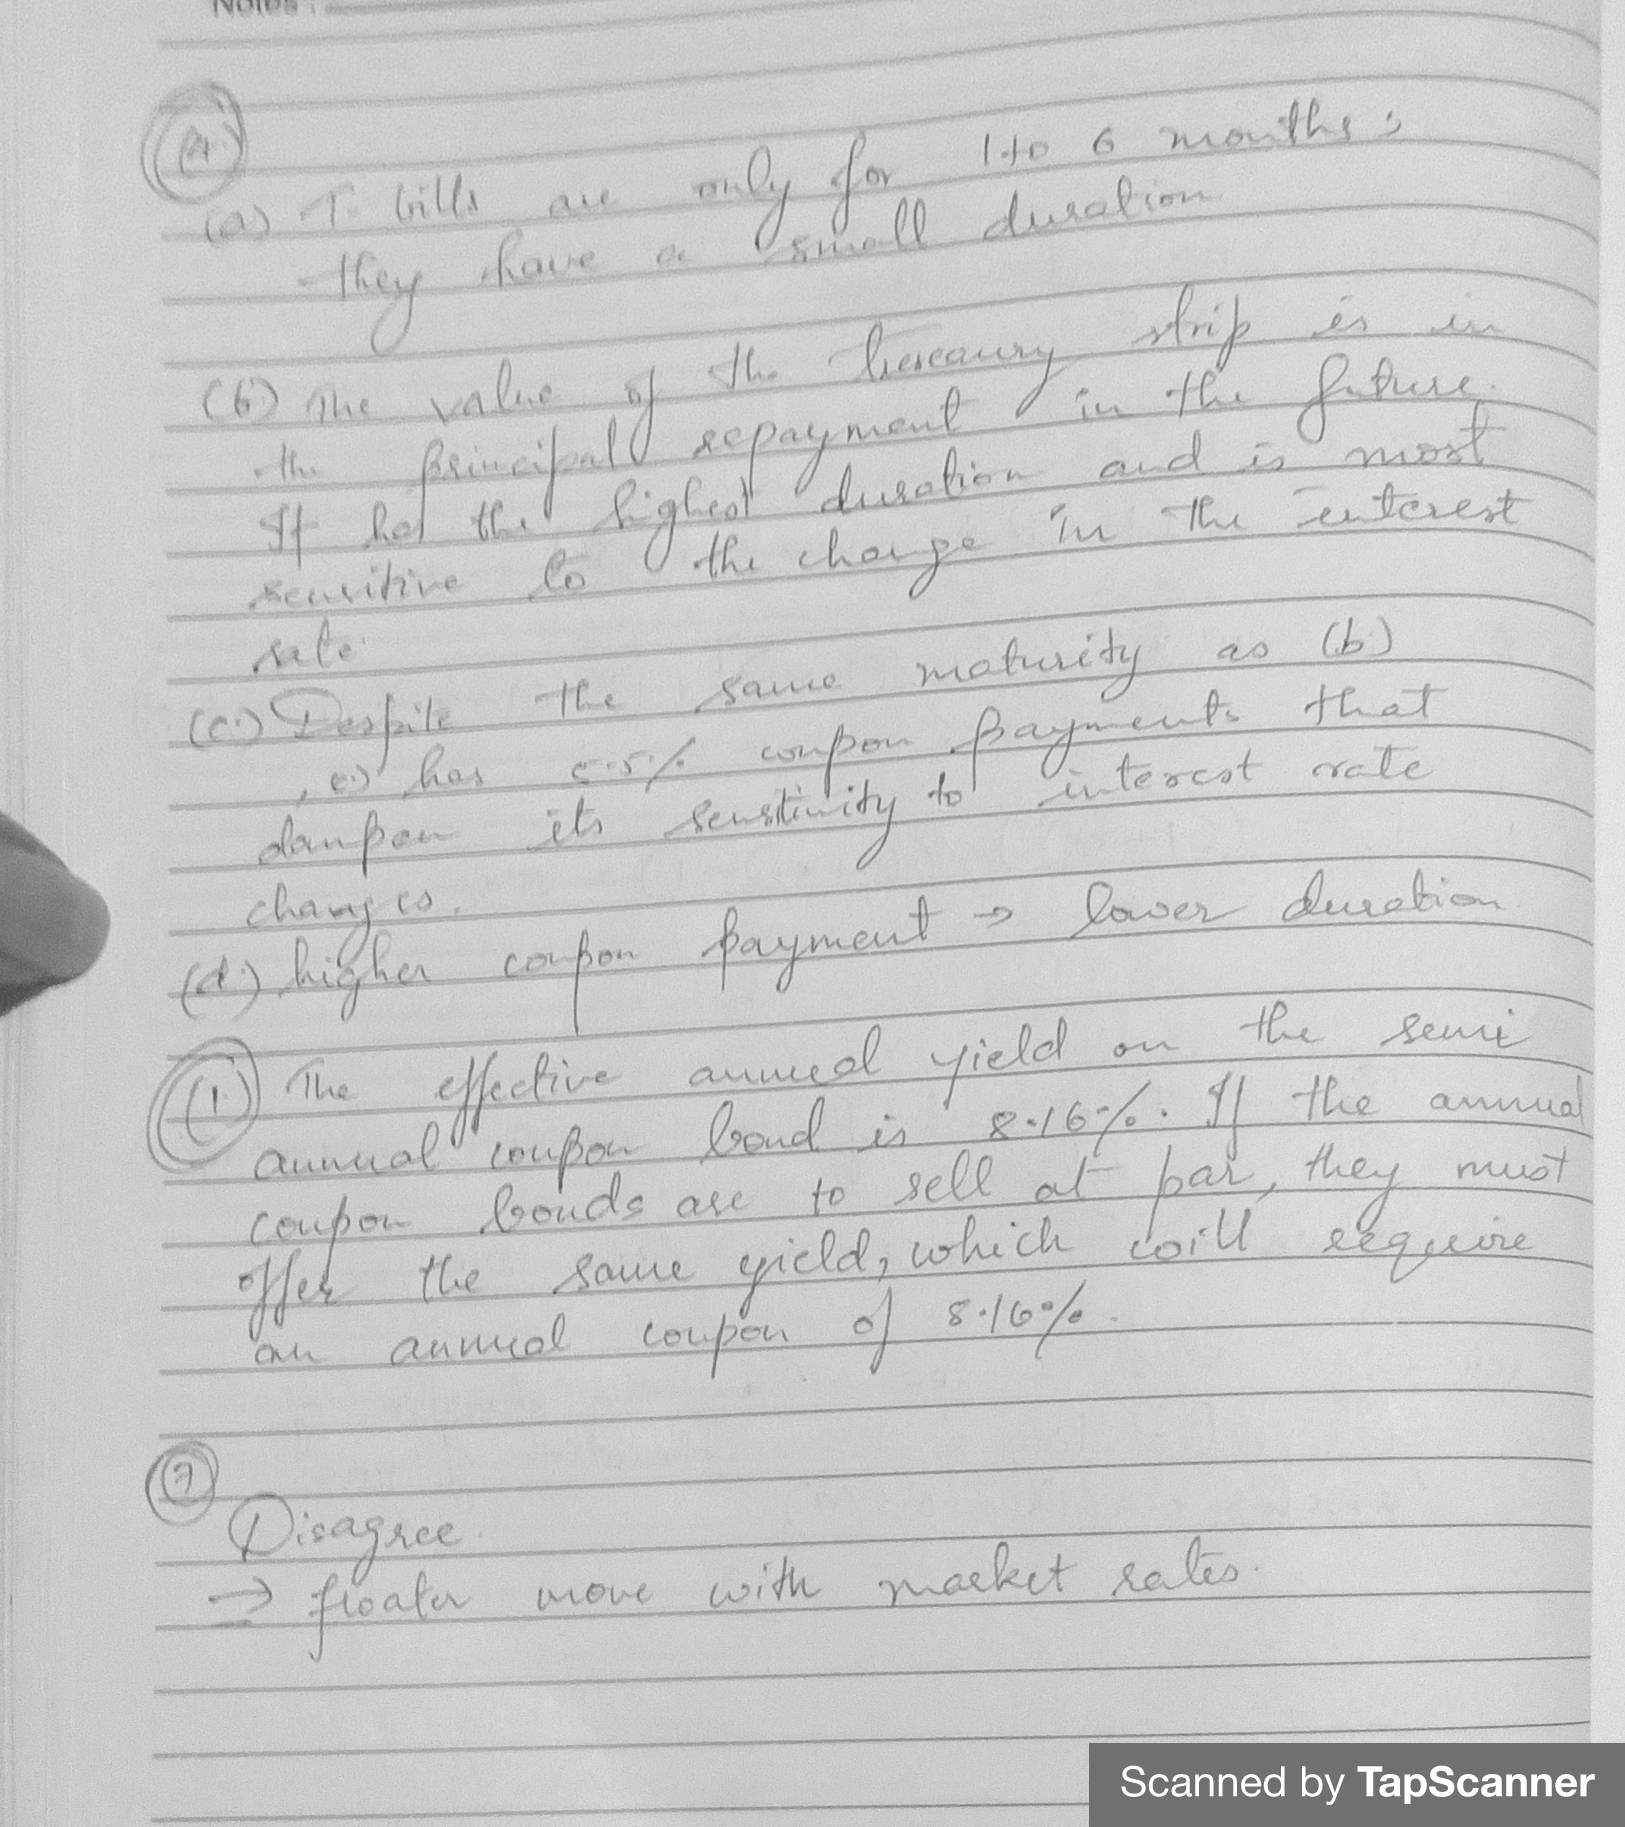 Notes :
(4)
(a) T-bills are only for 1 to 6 months,
they have a small duration
(b) The value of the treasury strip is in
the principal repayment in the future.
It has the highest duration and is most
sensitive to the change in the interest
rate.
(c) Despite the same maturity as (b)
, c) has 5.5% coupon payments that
dampen its sensitivity to interest rate
changes.
(d) higher coupon payment → lower duration
(1.) The effective annual yield on the semi
annual coupon bond is 8.16%. If the annual
coupon bonds are to sell at par, they must
offer the same yield, which will require
an annual coupon of 8.16%.
(7)
Disagree.
⇒ floater move with market rates.
Scanned by TapScanner